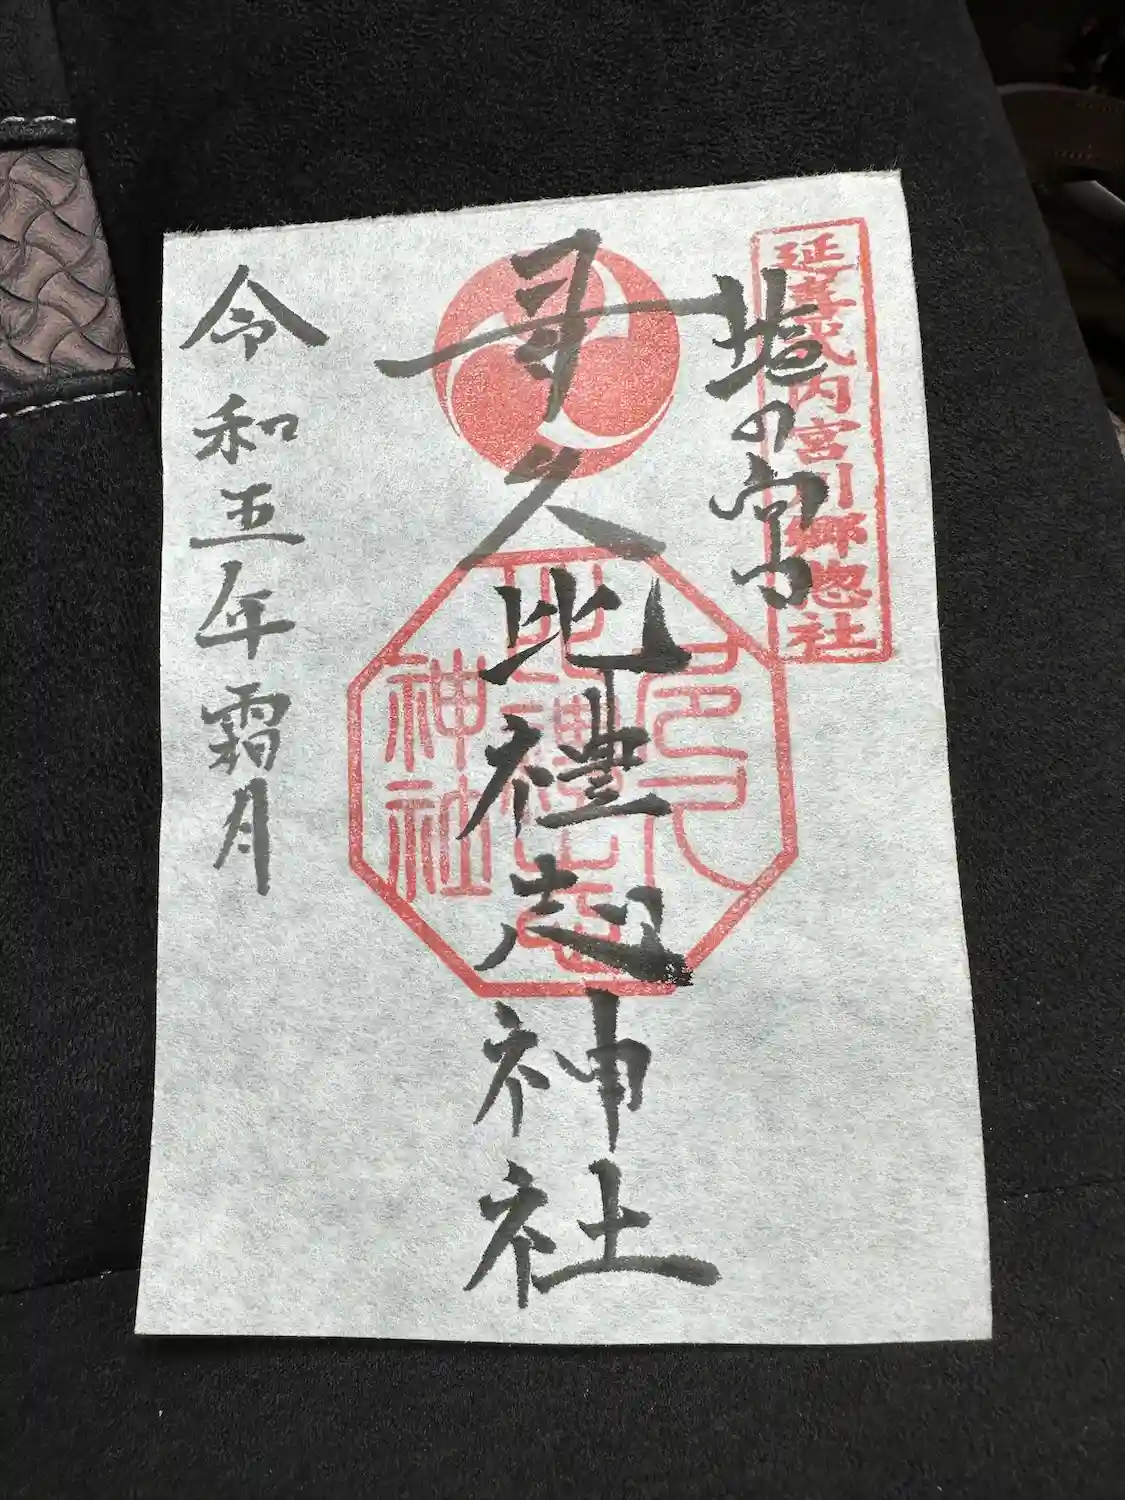 延喜式内宮川郷惣社
塩の宮
多久比禮志神社
多久
比禮志
神社
令和五年霜月